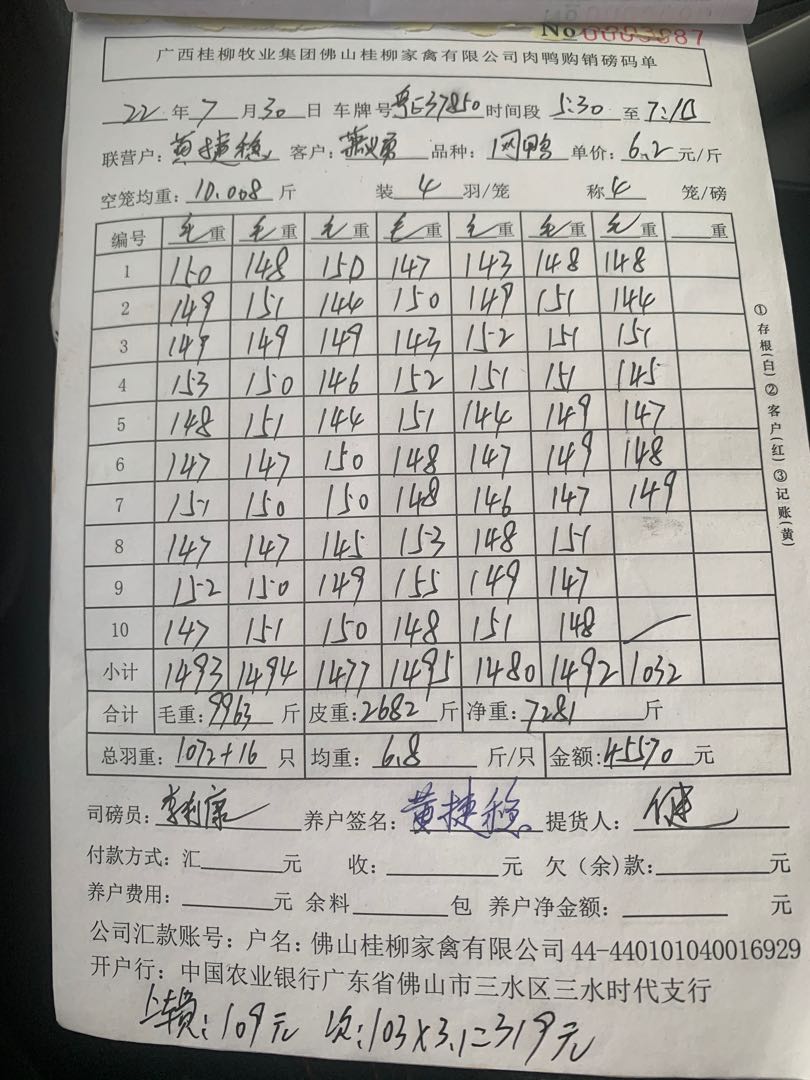 No 0003387
广西桂柳牧业集团佛山桂柳家禽有限公司肉鸭购销磅码单
22 年 7 月 30 日 车牌号 粤E37850 时间段 5:30 至 7:10
联营户: 黄捷稳 客户: 品种: 网鸭 单价: 6.2 元/斤
空笼均重: 10.008 斤 装 4 羽/笼 称 4 笼/磅
编号 毛重 毛重 毛重 毛重 毛重 毛重 毛重 重
1 150 148 150 147 143 148 148
2 149 151 144 150 149 151 144
3 149 149 149 143 152 151 151
4 153 150 146 152 151 151 145
5 148 151 144 151 144 149 147
6 147 147 150 148 147 149 148
7 151 150 150 148 146 147 149
8 147 147 145 153 148 151
9 152 150 149 155 149 147
10 147 151 150 148 151 148
小计 1493 1494 1477 1495 1480 1492 1032
合计 毛重: 9963 斤 皮重: 2682 斤 净重: 7281 斤
总羽重: 1072+16 只 均重: 6.8 斤/只 金额: 45570 元
司磅员: 李利康 养户签名: 黄捷稳 提货人: 健
付款方式: 汇 元 收: 元 欠(余)款: 元
养户费用: 元 余料 包 养户净金额: 元
公司汇款账号: 户名: 佛山桂柳家禽有限公司 44-440101040016929
开户行: 中国农业银行广东省佛山市三水区三水时代支行
: 109元 次: 103×3.1=319元
①存根(白)②客户(红)③记账(黄)